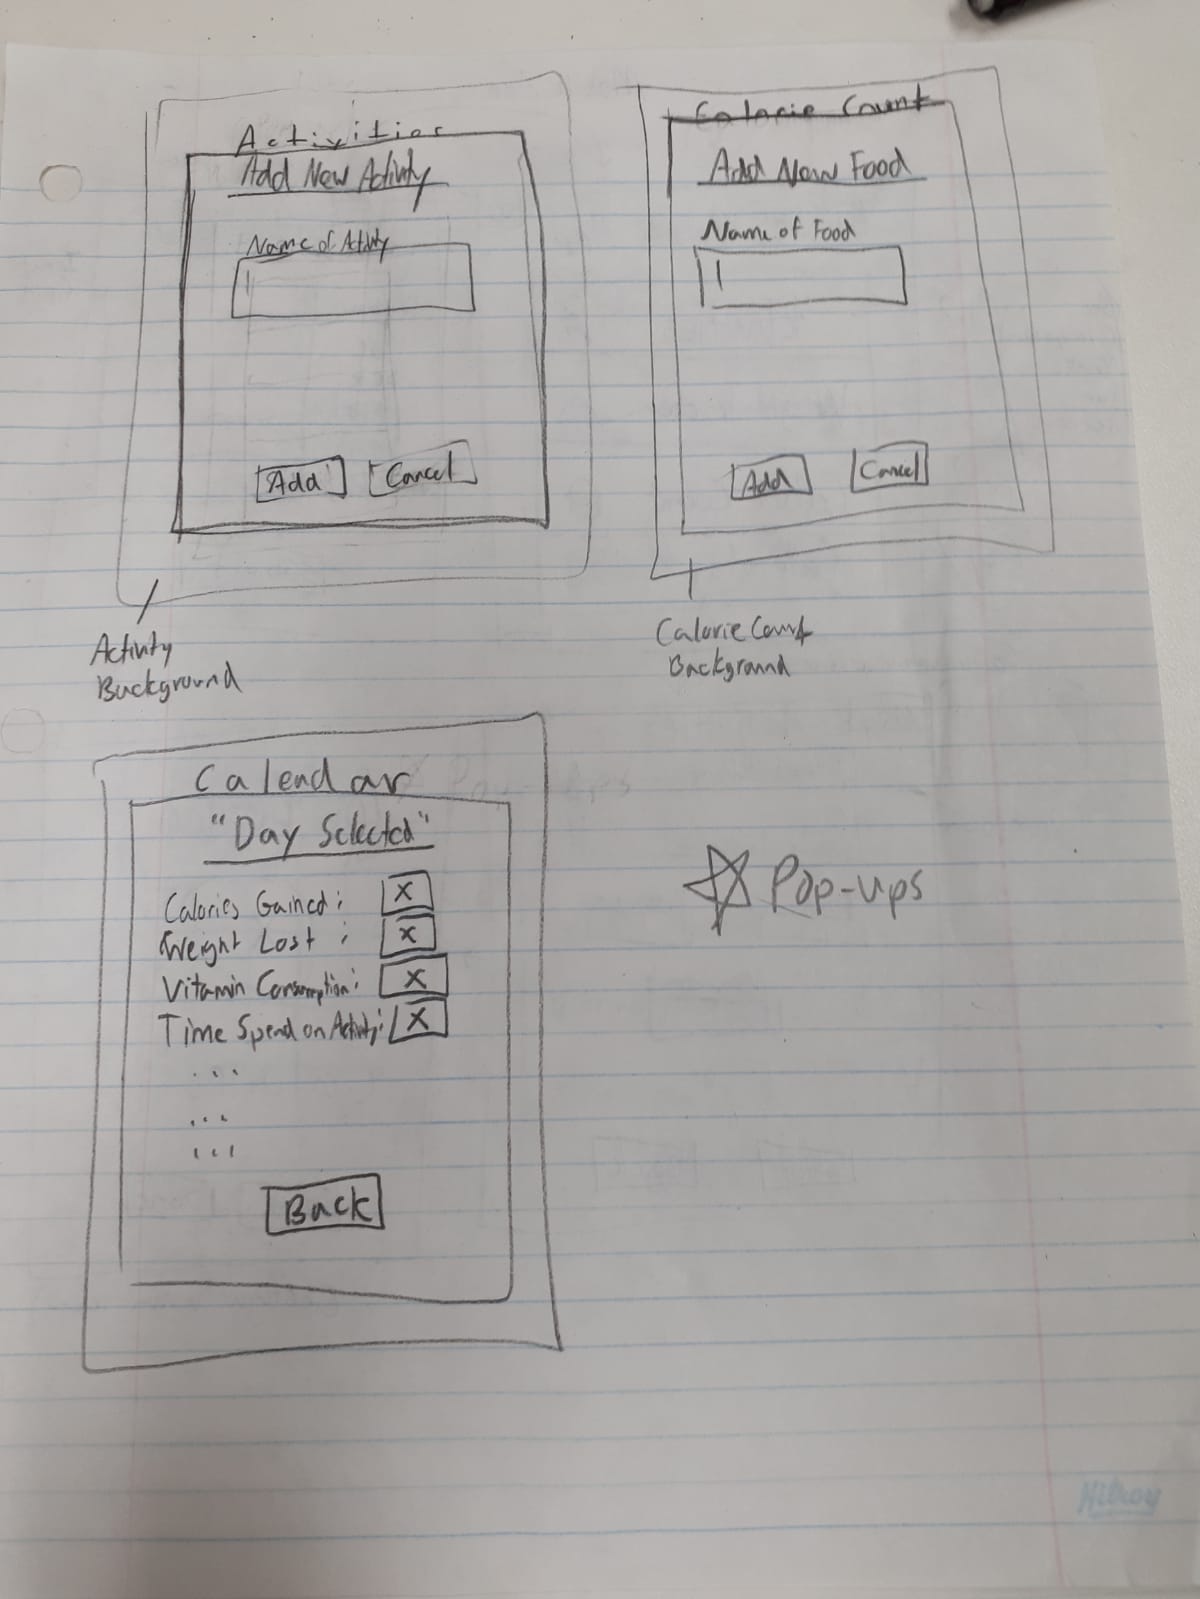 Activities
Add New Activity
Name of Activity
Add
Cancel
Activity
Background
Calorie Count
Add New Food
Name of Food
Add
Cancel
Calorie Count
Background
Calendar
"Day Selected"
Calories Gained: X
Weight Lost : X
Vitamin Consumption: X
Time Spend on Activity: X
...
...
...
Back
Pop-ups
Hilroy